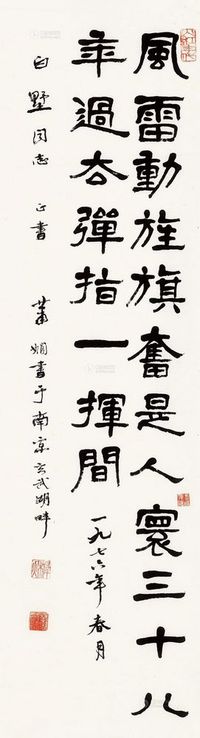 風雷動旌旗奮是人寰三十八
年過去彈指一揮間 一九七六年春月
白墅同志正書 蕭嫻書于南京玄武湖畔